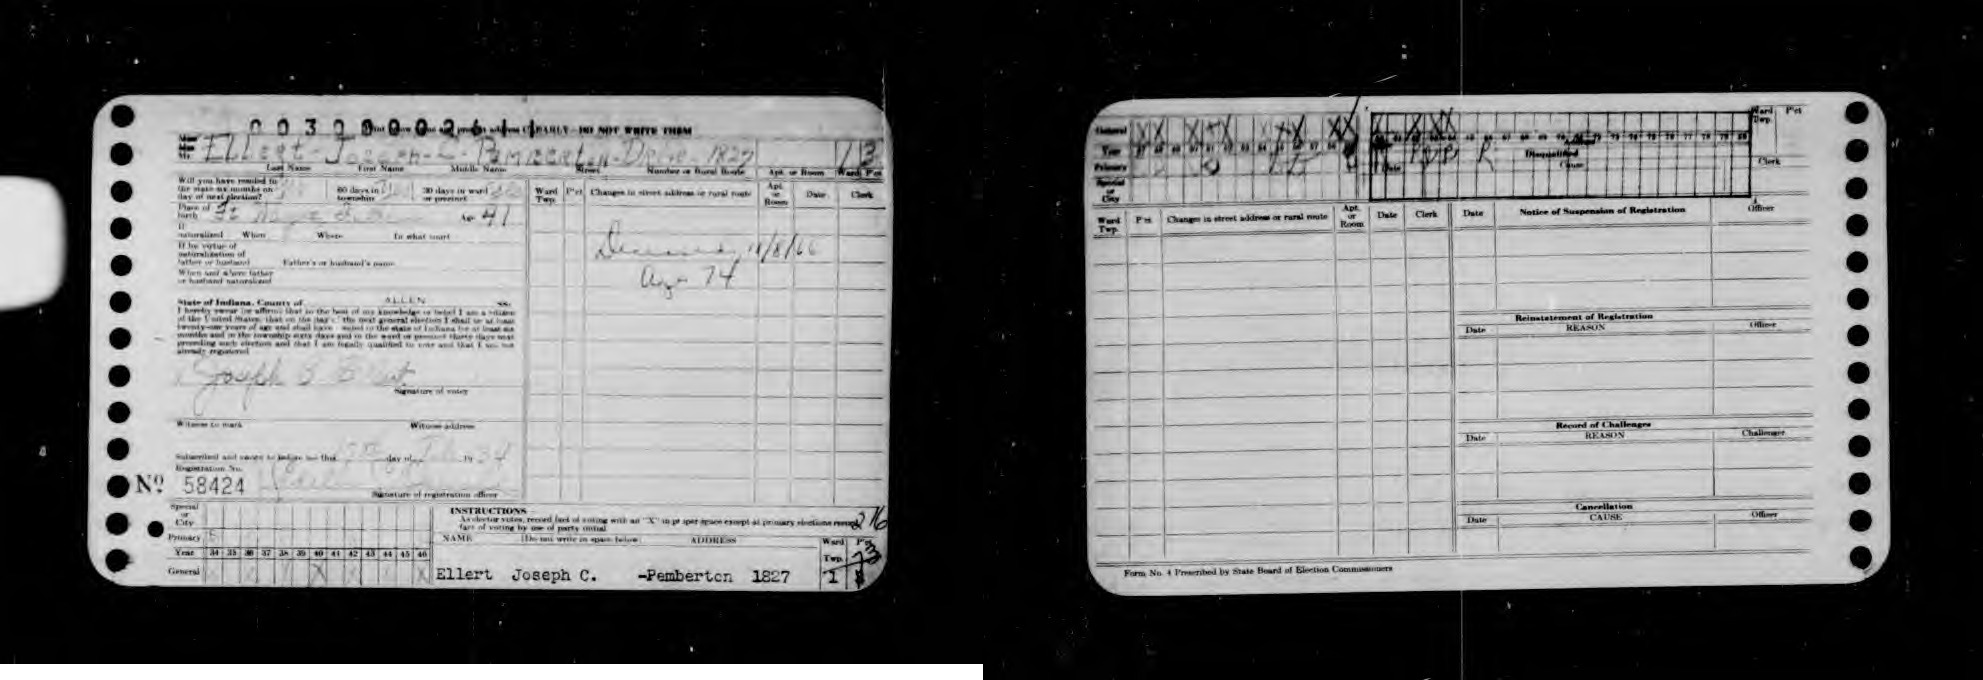 00300002611
CLEARLY—DO NOT WRITE THEM
Ellert - Joseph - C - Pemberton - Drive - 1827 1 3
Last Name First Name Middle Name Street Number or Rural Route Apt. or Room Ward P'ct
Will you have resided in
the state six months on 60 days in 30 days in ward
day of next election? township or precinct
Place of
birth Ft Wayne Age 41
If
naturalized When Where In what court
If by virtue of
naturalization of
father or husband Father's or husband's name
When and where father
or husband naturalized
State of Indiana, County of ALLEN ss.
I hereby swear (or affirm) that to the best of my knowledge or belief I am a citizen
of the United States, that on the day of the next general election I shall be at least
twenty-one years of age and shall have resided in the state of Indiana for at least six
months and in the township sixty days and in the ward or precinct thirty days next
preceding such election and that I am legally qualified to vote and that I am not
already registered
Joseph
Signature of voter
Witness to mark Witness address
Subscribed and sworn to before me this day of 19 34
Registration No.
Nº 58424
Signature of registration officer
Ward Twp. P'ct Changes in street address or rural route Apt. or Room Date Clerk
Deceased, /8/66
Age 74
Special
or
City
Primary
Year 34 35 36 37 38 39 40 41 42 43 44 45 46
General
INSTRUCTIONS
As elector votes, record fact of voting with an "X" in proper space except at primary elections record
fact of voting by use of party initial
NAME (Do not write in space below) ADDRESS Ward Twp. P'ct
Ellert Joseph C. -Pemberton 1827 1
216
General
Year
Primary
Special
or
City
Disqualified
Date Cause
Ward
Twp. P'ct
Clerk
Ward Twp. P'ct Changes in street address or rural route Apt. or Room Date Clerk
Date Notice of Suspension of Registration Officer
Reinstatement of Registration
Date REASON Officer
Record of Challenges
Date REASON Challenger
Cancellation
Date CAUSE Officer
Form No. 4 Prescribed by State Board of Election Commissioners